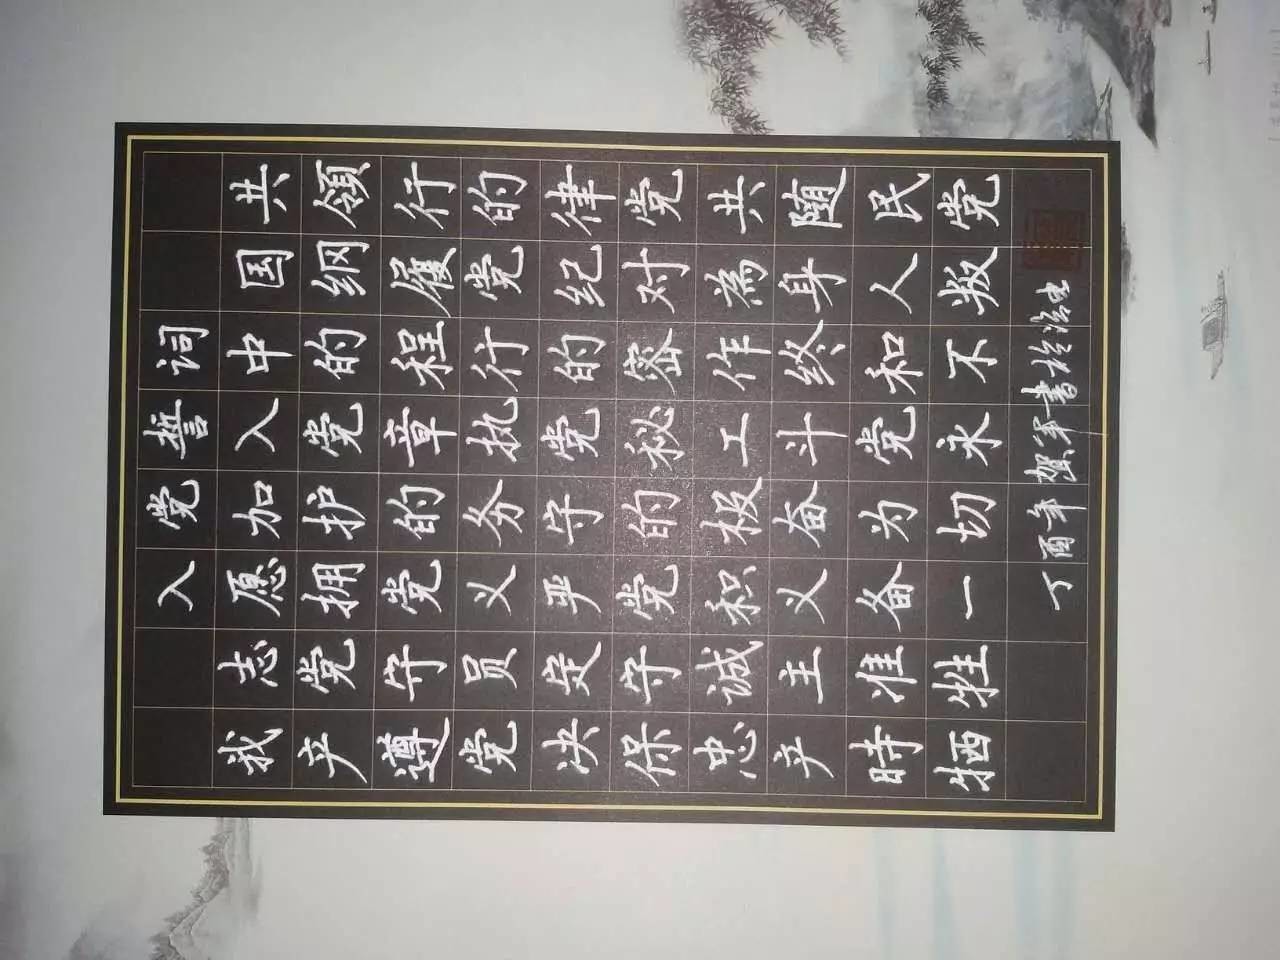 入党誓词
我志愿加入中国共
产党拥护党的纲領
遵守党的章程履行
党员义务执行党的
决定严守党的纪律
保守党的秘密对党
忠诚积极工作為共
产主义奋斗终身随
時准备为党和人民
牺牲一切永不叛党
丁酉年贺军書於